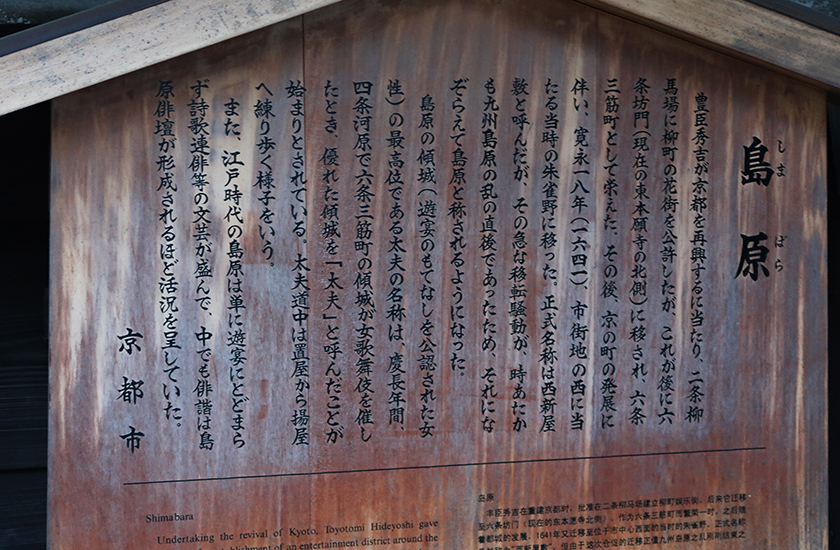 島原
しまばら
豊臣秀吉が京都を再興するに当たり、二条柳
馬場に柳町の花街を公許したが、これが後に六
条坊門(現在の東本願寺の北側)に移され、六条
三筋町として栄えた。その後、京の町の発展に
伴い、寛永一八年(一六四一)、市街地の西に当
たる当時の朱雀野に移った。正式名称は西新屋
敷と呼んだが、その急な移転騒動が、時あたか
も九州島原の乱の直後であったため、それにな
ぞらえて島原と称されるようになった。
島原の傾城(遊宴のもてなしを公認された女
性)の最高位である太夫の名称は、慶長年間、
四条河原で六条三筋町の傾城が女歌舞伎を催し
たとき、優れた傾城を「太夫」と呼んだことが
始まりとされている。太夫道中は置屋から揚屋
へ練り歩く様子をいう。
また、江戸時代の島原は単に遊宴にとどまら
ず詩歌連俳等の文芸が盛んで、中でも俳諧は島
原俳壇が形成されるほど活況を呈していた。
京都市
Shimabara
Undertaking the revival of Kyoto, Toyotomi Hideyoshi gave
establishment of an entertainment district around the
岛原
丰臣秀吉在重建京都时，批准在二条柳马场建立柳町娱乐街，后来它迁移
至六条坊门（现在的东本愿寺北侧），作为六条三筋町而繁荣一时。之后随
着都城的发展，1641年又迁移至位于市中心西面的当时的朱雀野。正式名称